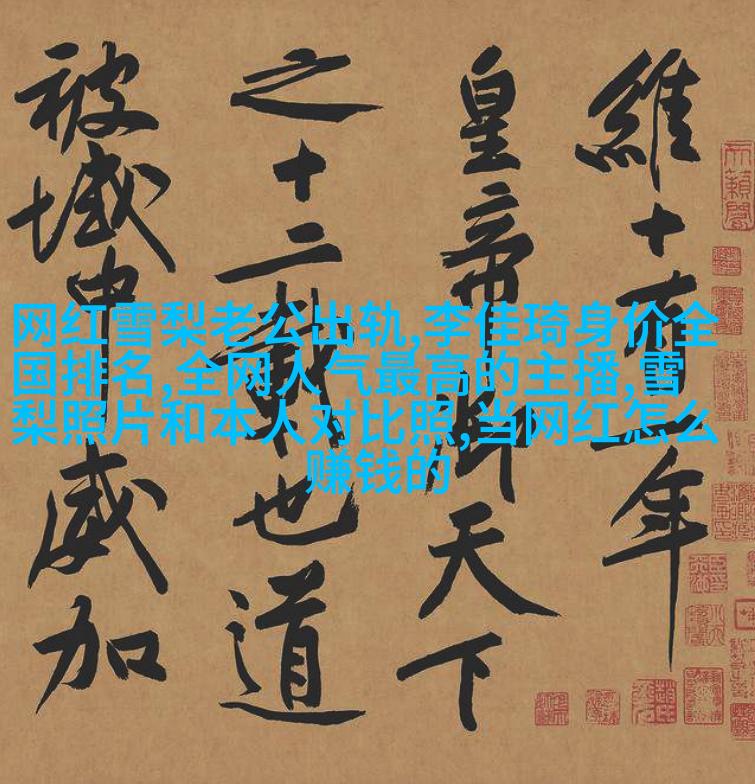 維十有一年
皇帝御天下
之十二載也道
被域中威加
网红雪梨老公出轨,李佳琦身价全
国排名,全网人气最高的主播,雪
梨照片和本人对比照,当网红怎么
赚钱的